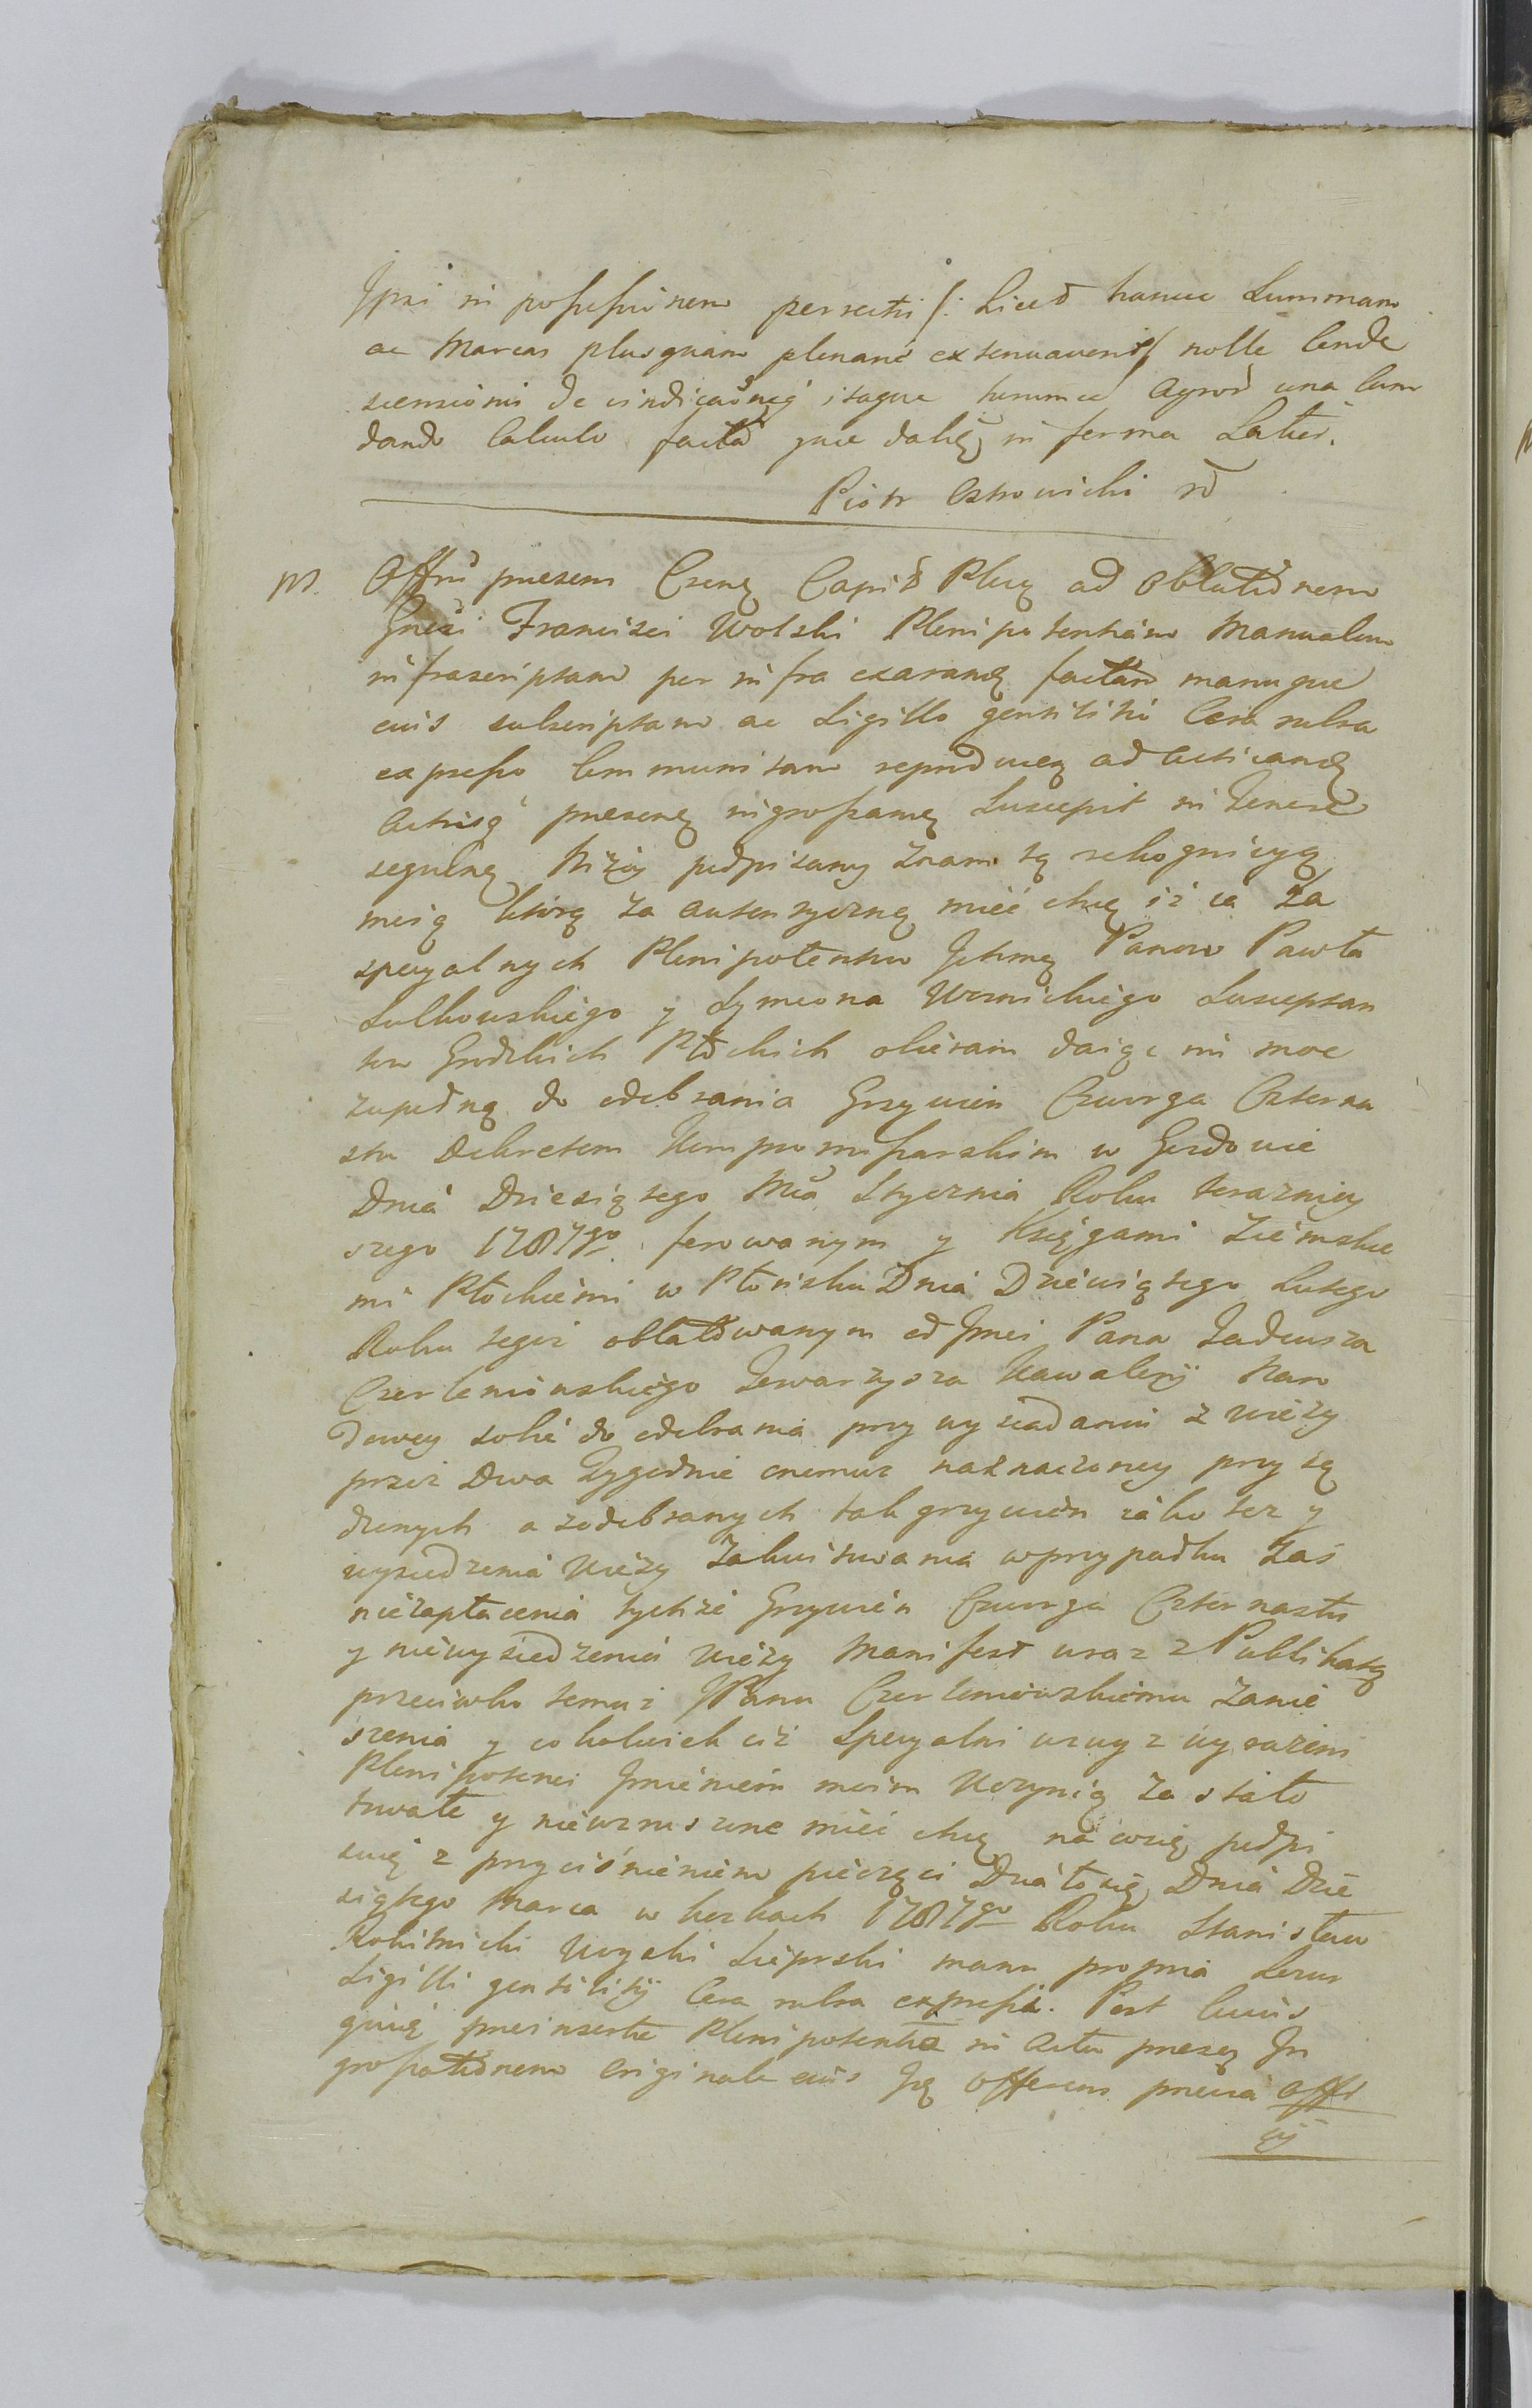 Ipsi in possessionem perventi /: Liced hance Summam
ac Marcas plusquam plenarie extenuaverit/ nolle Conde
scensioni de vindicaonẽ itaque hunmce agrod una Cum
dando Calculo facto que dalię in forma Latiori.
Piotr Ostrowicki
M. Offm presens Csenę Capit Plucę ad oblationem
Gnesi Francisci Wolski Plenipotentiam Manualem
infrascriptam per infra exarandę factam manuque
eius subscriptam ac Sigillo gentilitio Cera rubra
expresso Communitam reproducę ad acticandę
Actisq presenę ingrossandę Suscepit in Tenore
sequenę Niżey podpisany znam tą rekognicyą
moią którą za autentyczną mieć chcę iż ia za
specyalnych Plenipotentow Ichmę Panow Pawła
Sulkowskiego y Symeona Woznickiego Susceptan
tow Grodzkich Płockich obieram daiąc im moc
zupełną do odebrania Grzywien Czworga Czterna
stu Dekretem Kompromissarskim w Gozdowie
Dnia Dziesiątego Mca Stycznia Roku terazniey
szego 1787go ferowanym y Księgami Ziemskie
mi Płockiemi w Płońsku Dnia Dziewiątego Lutego
Roku tegoż oblatowanym od Jmci Pana Tadeusza
Czerleniowskiego Towarzysza Kawaleryi Naro
dowey sobie do odebrania przy wysiadaniu z wieży
przez Dwa Tygodnie onemuz naznaczoney przysą
dzonych a zodebranych tak grzywien iako też y
wysiedzenia wieży Zakwitowania wprzypadku zaś
niezapłacenia tychże Grzywien Czworga Czternastu
y niewysiedzenia wieży Manifest wraz z Publikatą
przeciwko temuż JPanu Czerleniowskiemu zanie
szenia y cokolwiek ciż Specyalni wzwyż wyrażeni
Plenipotenci Imieniem moim Uczynią za stałe
trwałe y niewzruszone mieć chcę na co się podpi
suię z przyciśnieniem pieczęci Działo się Dnia Dzie
siątego Marca w kozkach 1787go Roku Stanisław
Rokitnicki Woyski Sieprski manu propria Locus
Sigilli gentilitij Cera rubra expressi. Post cuius
quię preinserte Plenipotentiae in Acta presenę In
grossationem Originale eius Ię offerens previa offi
cij